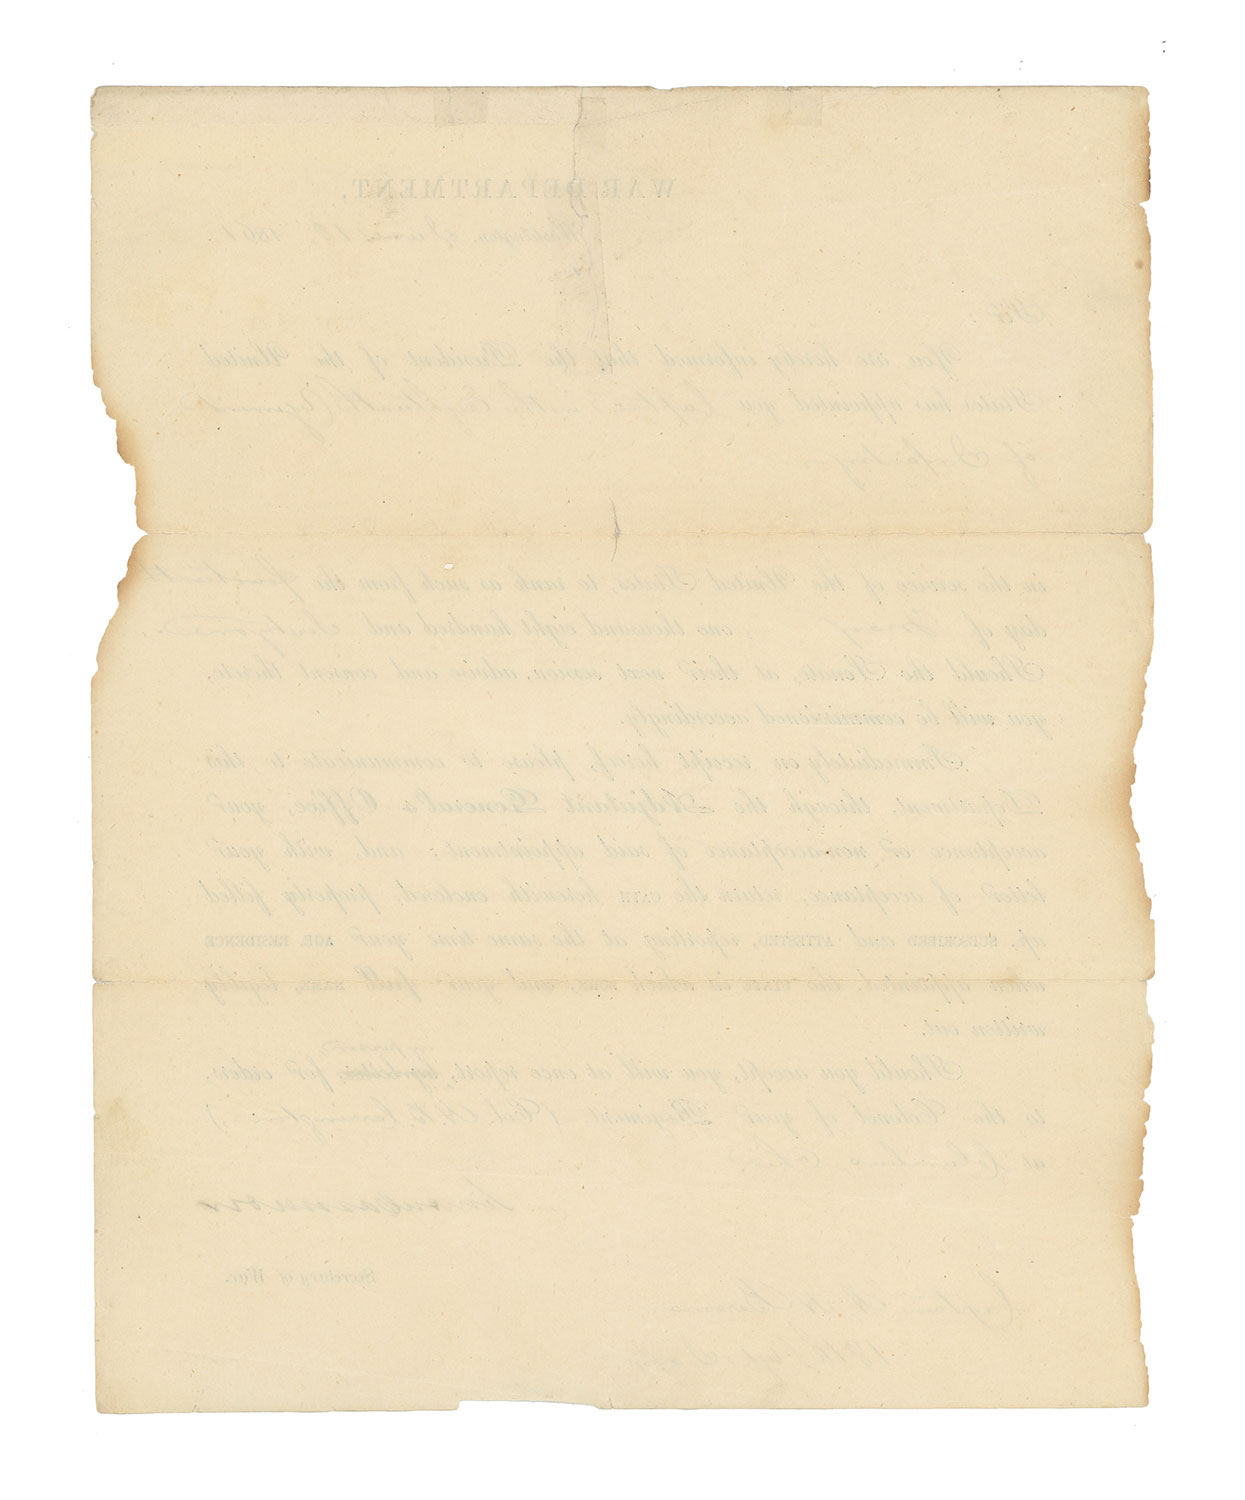 WAR DEPARTMENT,
Washington, June 18, 1861
Sir:
You are hereby informed that the President of the United
States has appointed you Captain in the Eighteenth Regiment
of Infantry
in the service of the United States, to rank as such from the fourteenth
day of May , one thousand eight hundred and sixty one.
Should the Senate, at their next session, advise and consent thereto,
you will be commissioned accordingly.
Immediately on receipt hereof, please to communicate to this
Department, through the Adjutant General's Office, your
acceptance or non-acceptance of said appointment; and, with your
letter of acceptance, return the OATH herewith enclosed, properly filled
up, SUBSCRIBED and ATTESTED, reporting at the same time your AGE, RESIDENCE
when appointed, the STATE in which BORN, and your full NAME, legibly
written out.
in person
Should you accept, you will at once report, by letter, for orders,
to the Colonel of your Regiment (Col. H. B. Carrington)
at Columbus Ohio
Simon Cameron
Secretary of War.
Captain
18th Infty